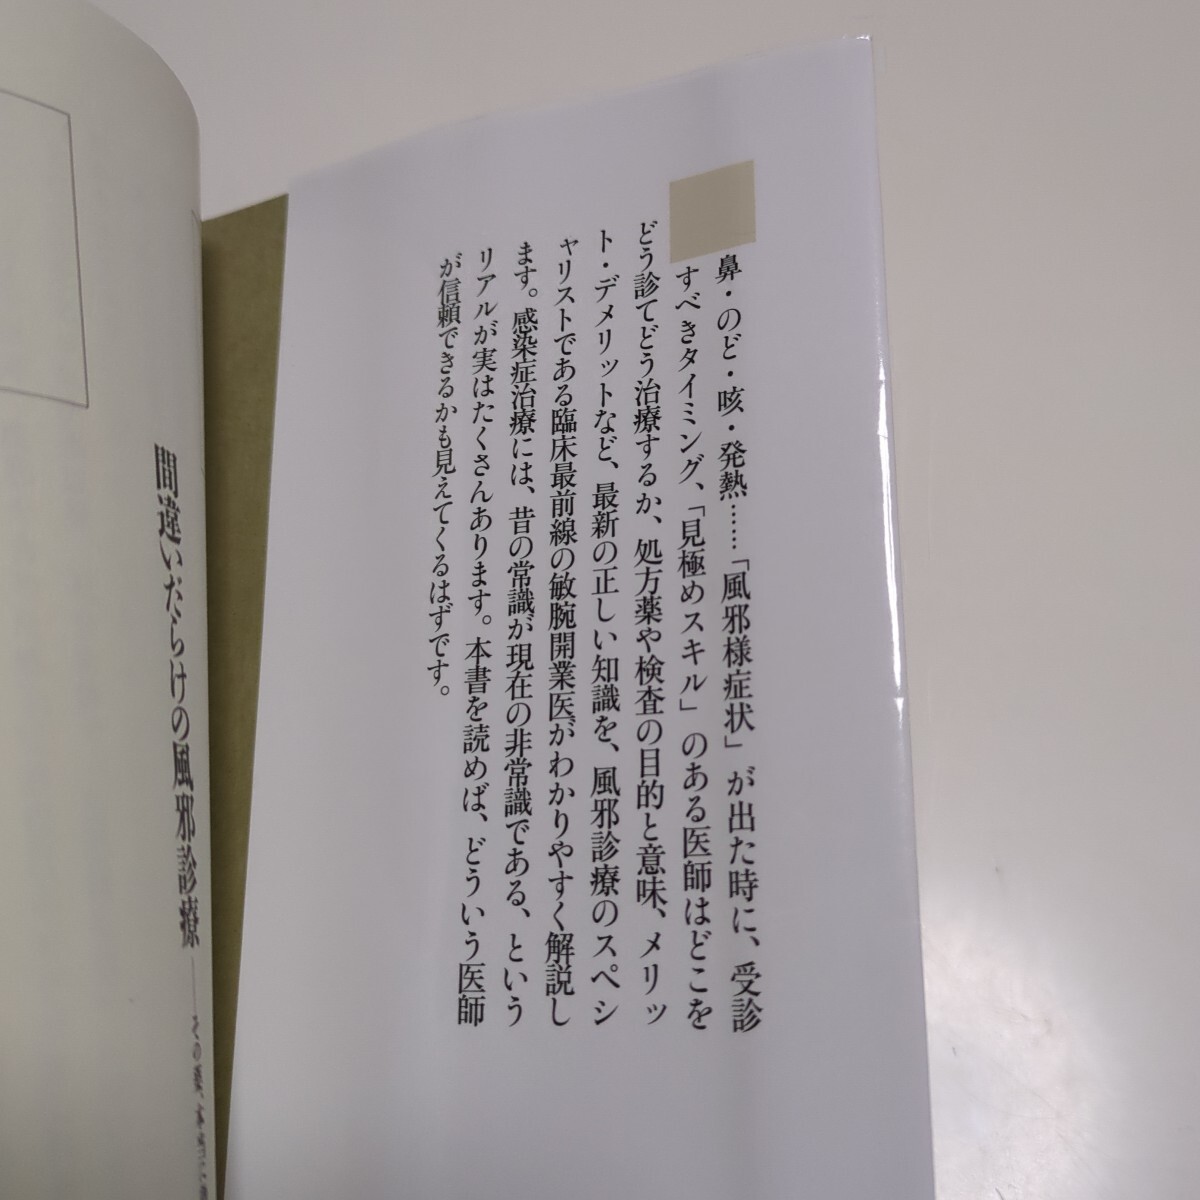 鼻・のど・咳・発熱……「風邪様症状」が出た時に、受診
すべきタイミング、「見極めスキル」のある医師はどこを
どう診てどう治療するか、処方薬や検査の目的と意味、メリッ
ト・デメリットなど、最新の正しい知識を、風邪診療のスペシ
ャリストである臨床最前線の敏腕開業医がわかりやすく解説し
ます。感染症治療には、昔の常識が現在の非常識である、という
リアルが実はたくさんあります。本書を読めば、どういう医師
が信頼できるかも見えてくるはずです。
間違いだらけの風邪診療――その薬、本当に